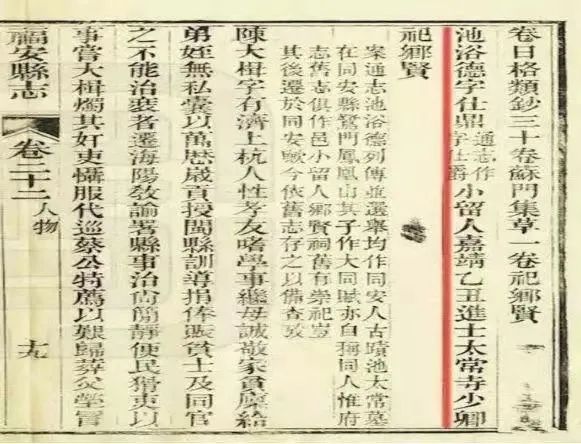 卷日格類鈔三十卷蘇門集草一卷祀鄉賢
池浴德字仕鼎通志作字仕爵小留人嘉靖乙丑進士太常寺少卿
祀鄉賢
案通志池浴德列傳並選舉均作同安人古蹟池太常墓
在同安縣鷺門鳳凰山其子作大同賦亦自稱同人惟府
志舊志俱作邑小留人鄉賢祠舊有崇祀豈
其後遷於同安歟今依舊志存之以備查攷
陳大楫字有濟上杭人性孝友嗜學事繼母誠敬家貧廩給
弟姪無私橐以萬厯歲貢授閩縣訓導捐俸賑貧士及同官
之不能治裝者遷海陽敎諭署縣事治尙簡靜便民猾吏以
事嘗大楫燭其奸吏懾服代巡蔡公特薦以艱歸葬父塋
福安縣志
卷二十二
人物
十九